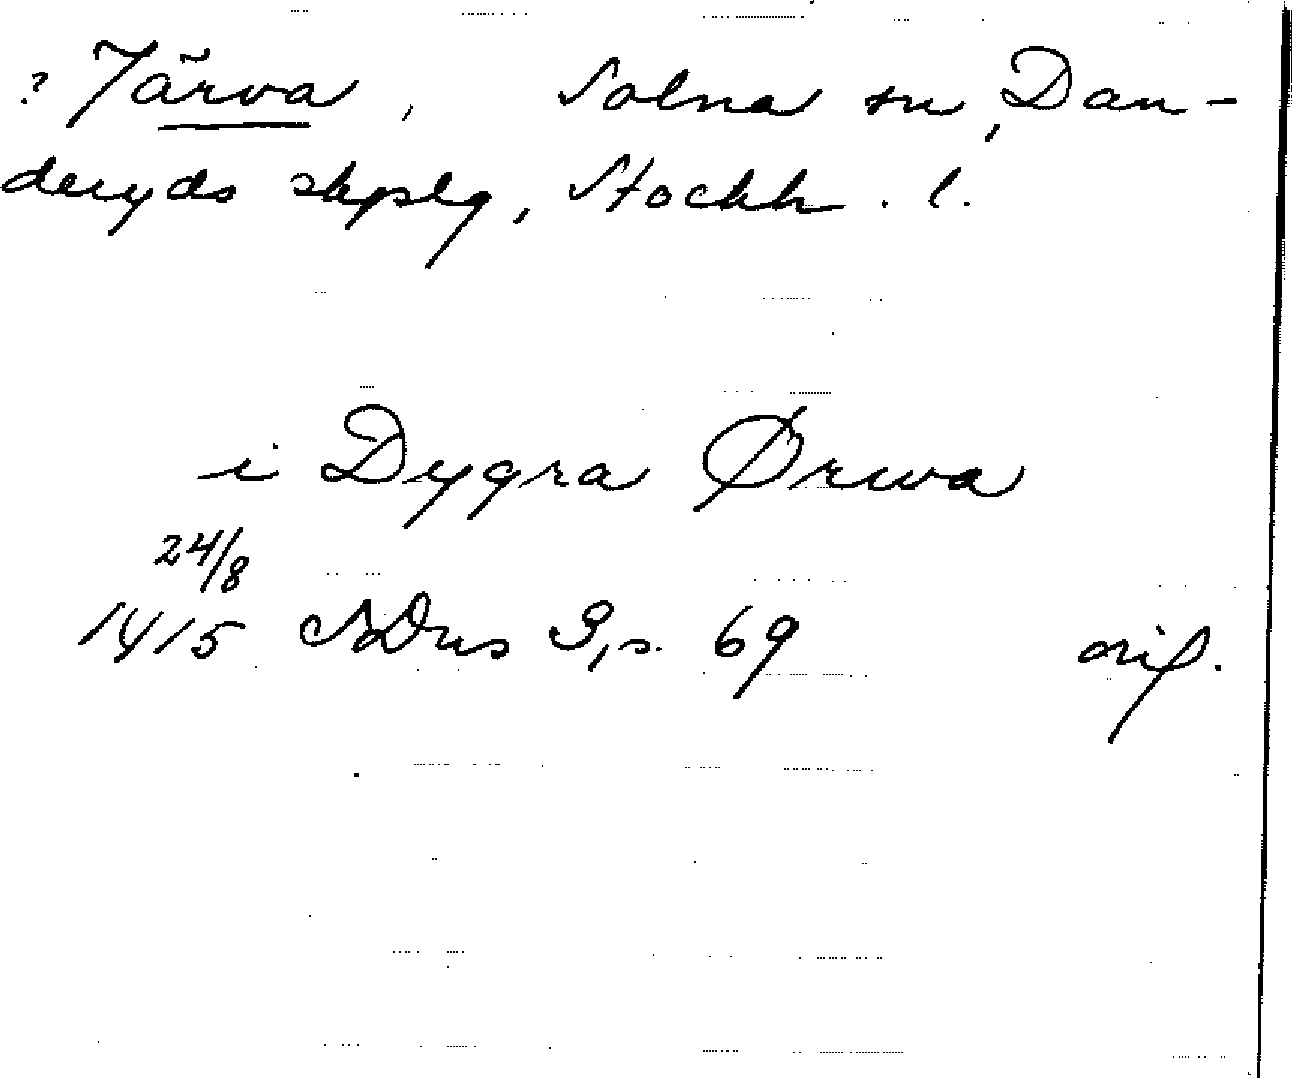 ? Järva, Solna sn, Dan-
deryds skpslg, Stockh. l.
i Dygra Ørwa
24/8
1415 SDns 3, s. 69 orig.